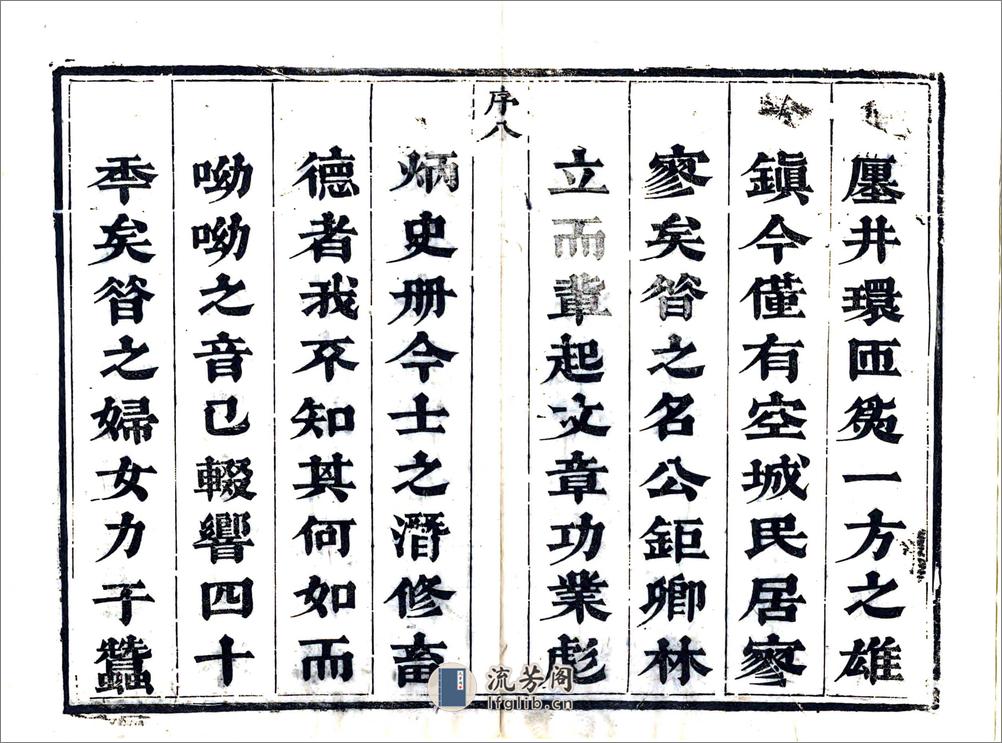 廛井環匝筑一方之雄
鎮今僅有空城民居寥
寥矣昝之名公鉅卿林
立而輩起文章功業彪
序八
炳史册今士之潛修畜
德者我不知其何如而
呦呦之音已輟響四十
秊矣昝之婦女力于蠶
流芳阁
lfglib.cn